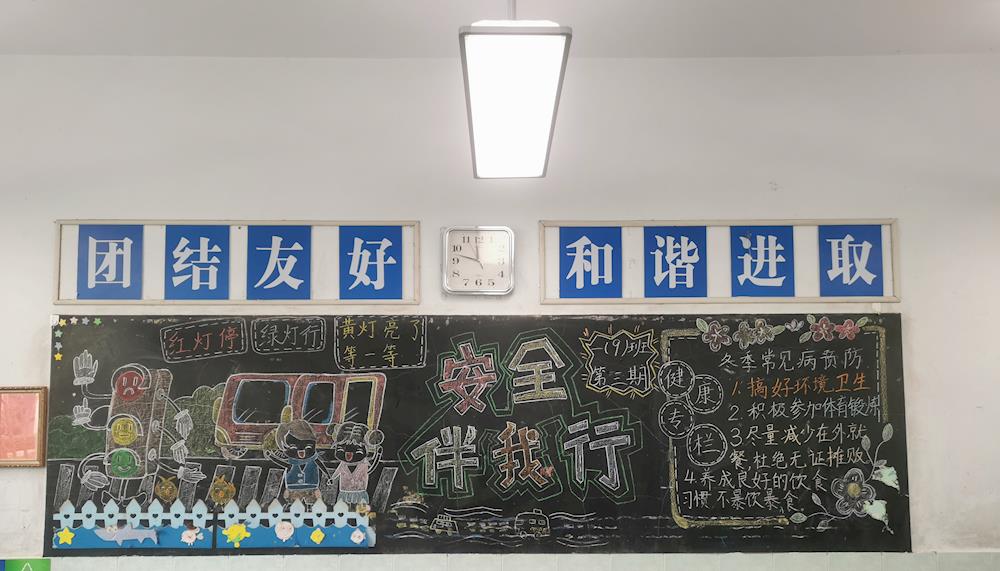 团结友好
和谐进取
红灯停
绿灯行
黄灯亮了
等一等
安全
伴我行
一(9)班
第三期
健康专栏
冬季常见病预防
1.搞好环境卫生
2.积极参加体育锻炼
3.尽量减少在外就
餐杜绝无证摊贩
4.养成良好的饮食
习惯不暴饮暴食